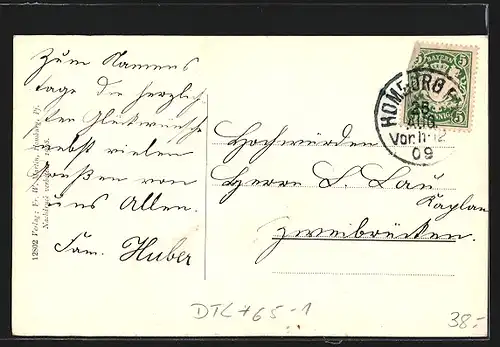 Zum Namens
tage die herzlich
sten Glückwünsche
nebst vielen
Grüßen von
uns Allen.
Fam. Huber
12892 Verlag: Fr. W. Homburg, Pf.
Nachdruck verboten
BAYERN
5 5
HOMBURG
25
AUG
Vor. 11-12
09
Hochwürden
Herrn L. Lau
Kaplan
Zweibrücken.
DTL765-1
38.-